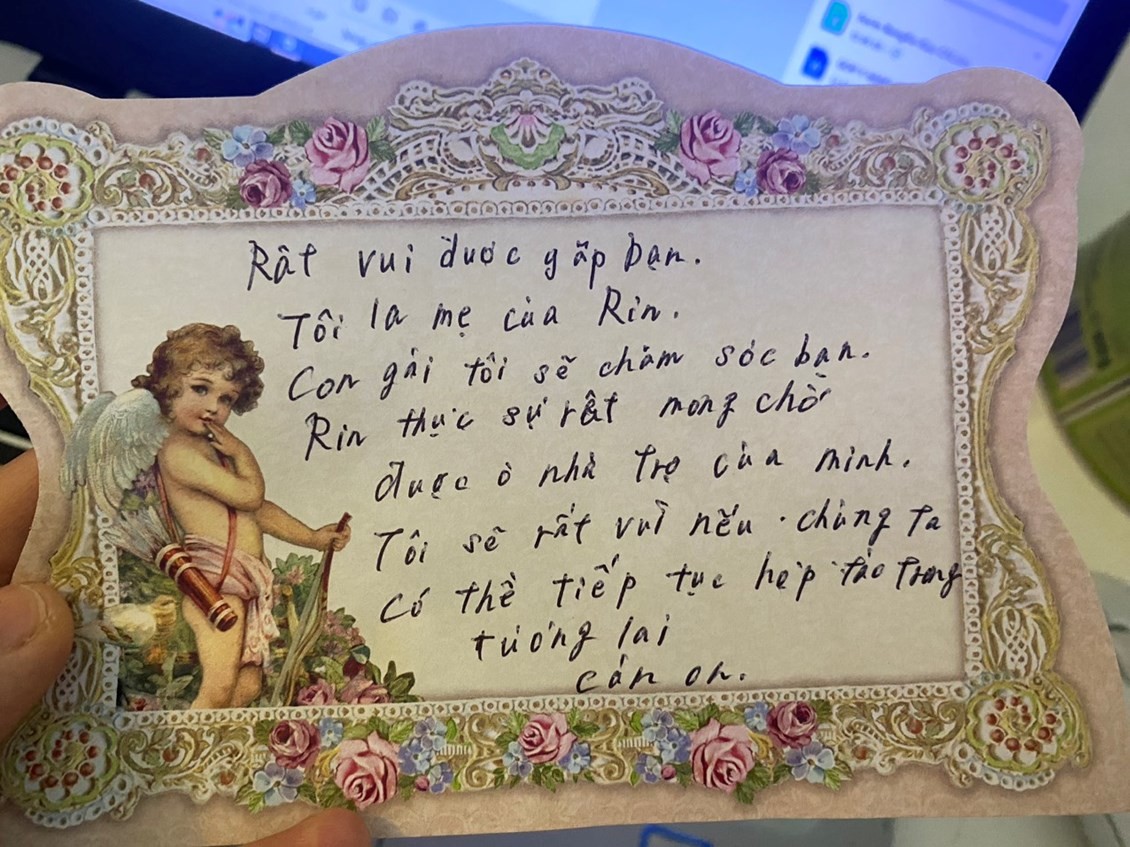 Rất vui được găp bạn.
Tôi la mẹ của Rin.
Con gái tôi sẽ chăm sóc bạn.
Rin thực sự rất mong chờ
được ở nhà trọ của mình.
Tôi sẽ rất vui nếu chúng ta
có thể tiếp tục hợp tác trong
tương lai
cản on.